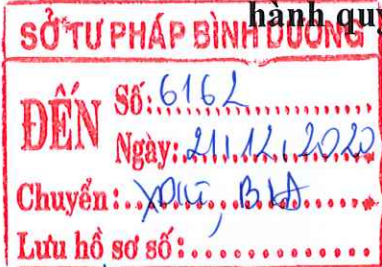 hành quy
SỞ TƯ PHÁP BÌNH DƯƠNG
ĐẾN
Số: 6162
Ngày: 21.12.2020
Chuyển:
Lưu hồ sơ số: